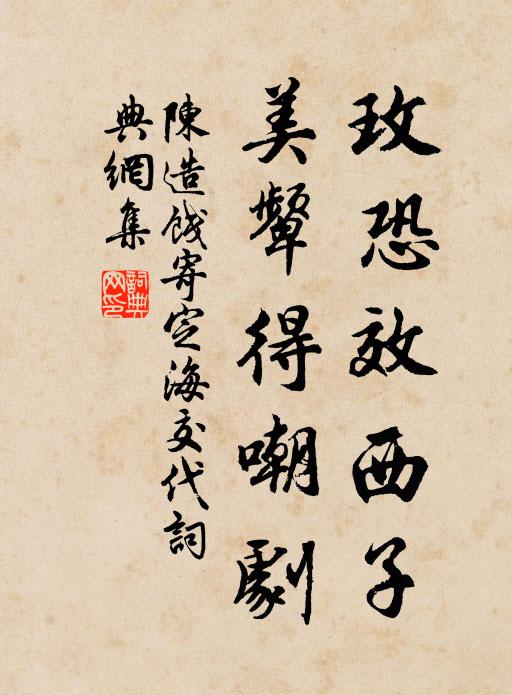 玫恐效西子
美顰得嘲劇
陳造餞寄定海交代詞
典網集
詞典網印